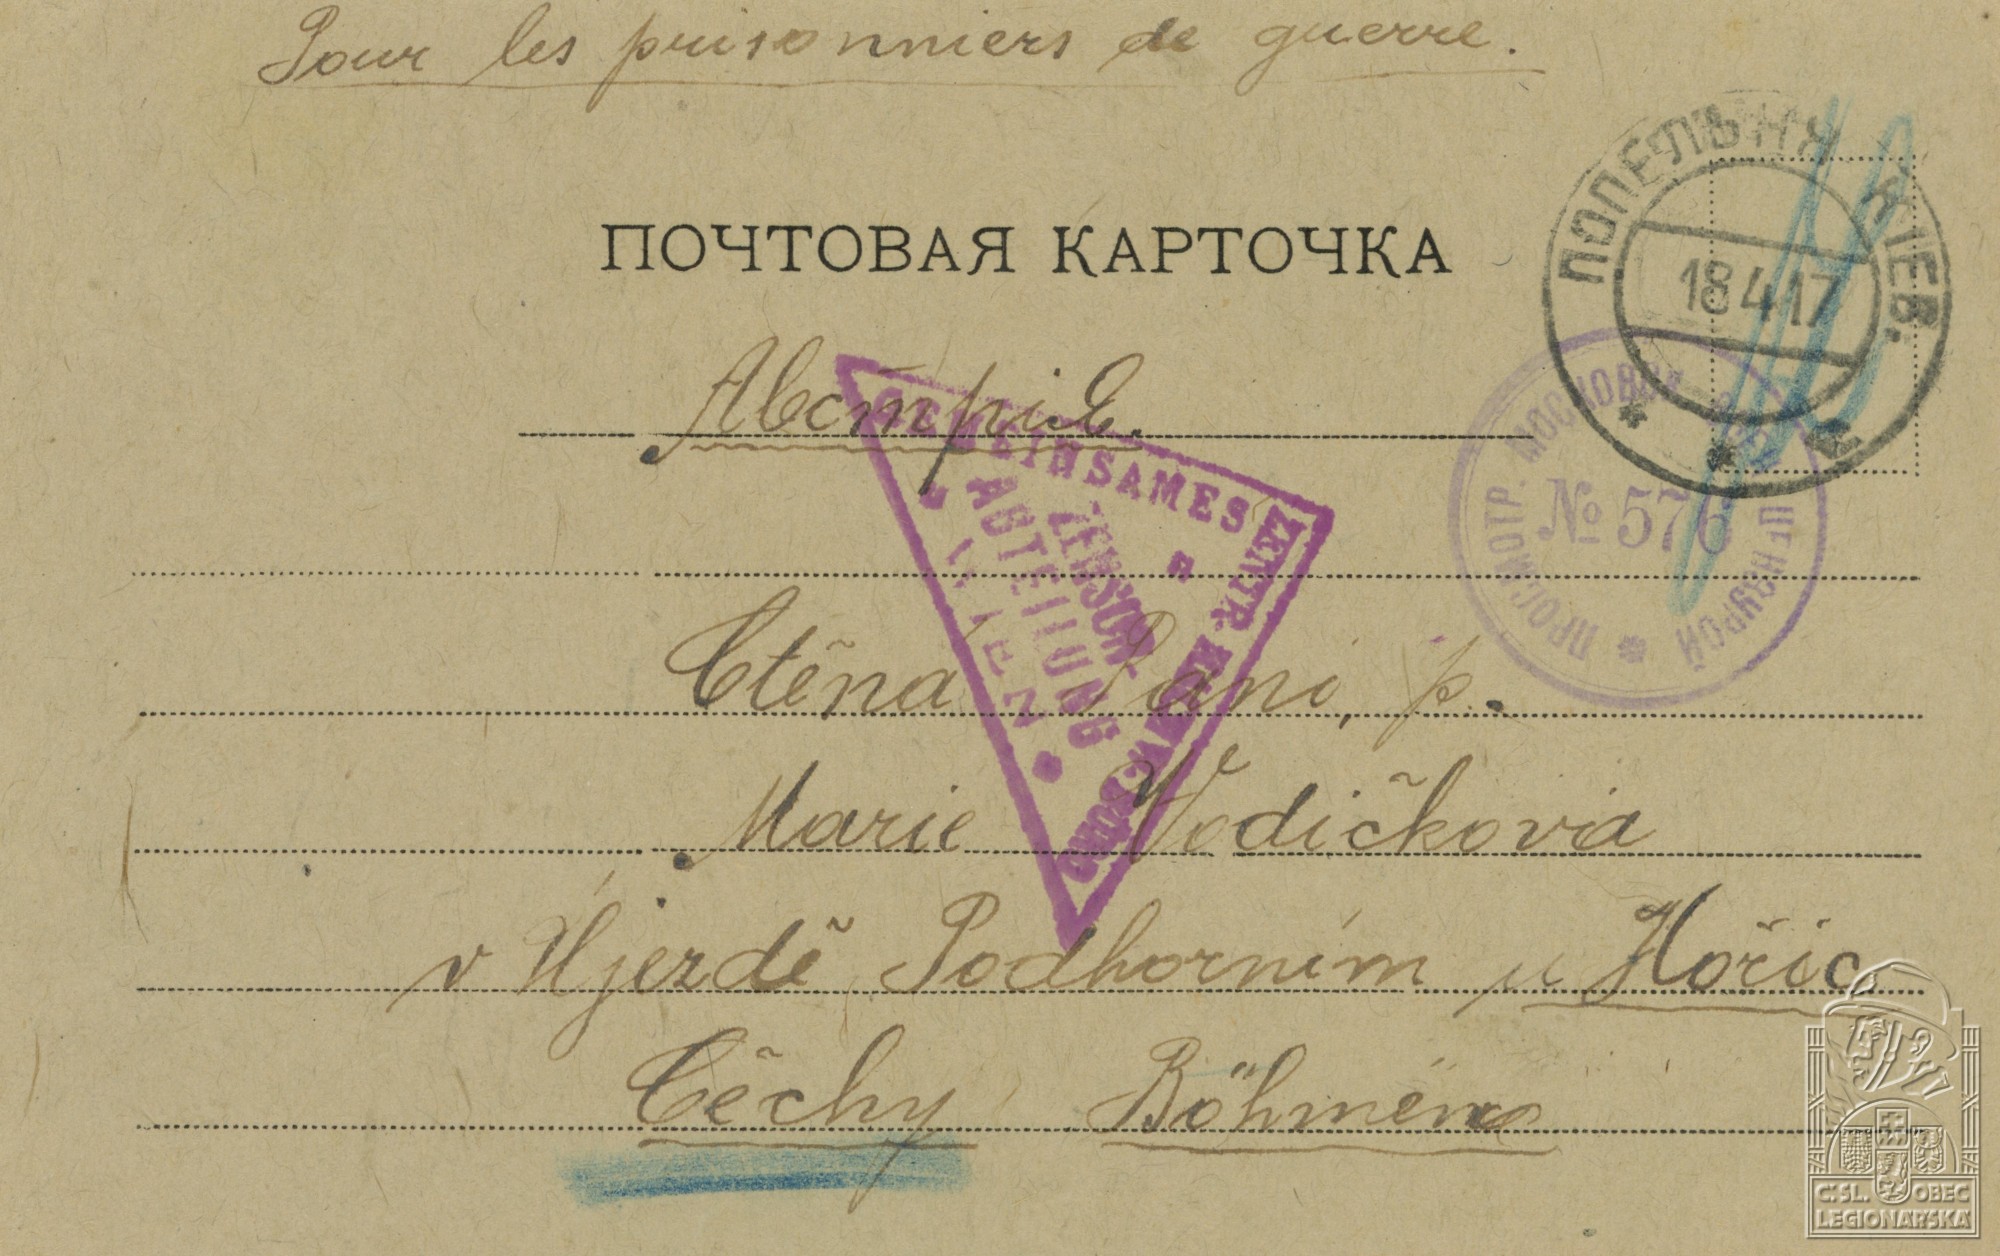 Pour les prisonniers de guerre.
ПОПЕЛЬНЯ КІЕВ.
18 4 17
ПОЧТОВАЯ КАРТОЧКА
Австрія.
ПРОСМОТР. МОСКОВСК. ВОЕН. ЦЕНЗУРОЙ
№ 576
GEMEINSAMES ZENTR.
ZENSUR
ABTEILUNG
WIEN
Ctěná Paní, p.
Marie Vodičková
v Újezdě Podhorním u Hořic
Čěchy Böhmen
Č. SL. OBEC
LEGIONÁŘSKÁ